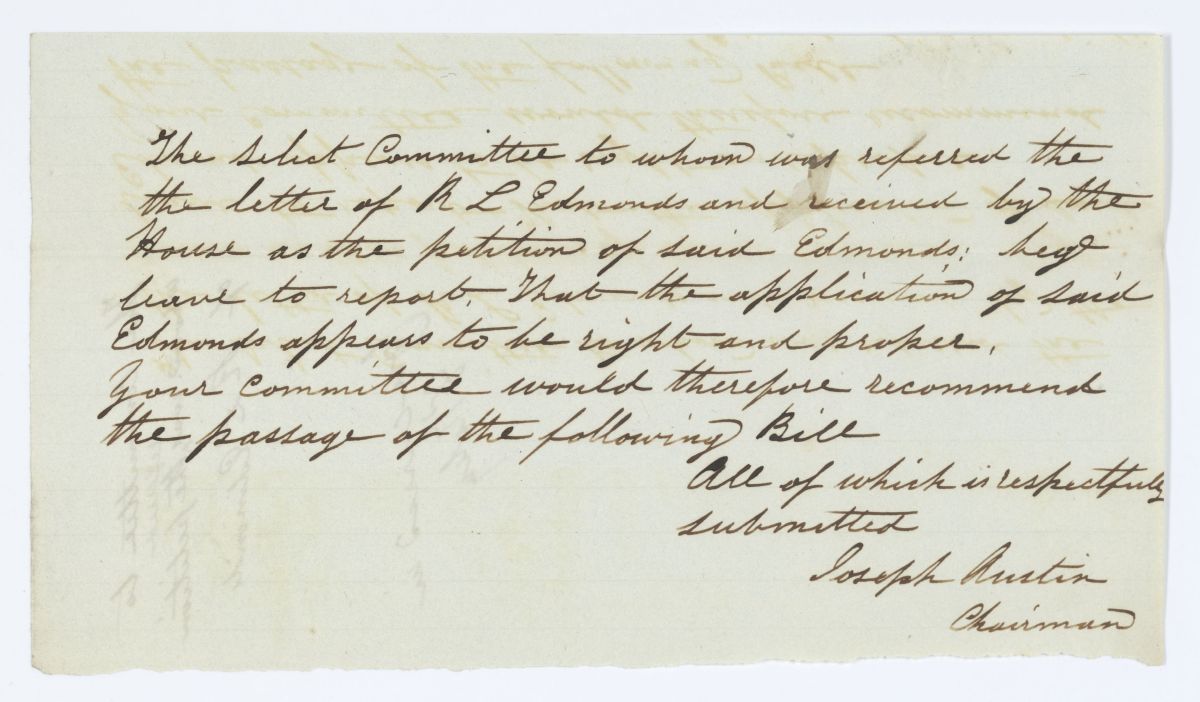 The select Committee to whom was referred the
the letter of R L Edmonds and received by the
House as the petition of said Edmonds; beg
leave to report, That the application of said
Edmonds appears to be right and proper.
Your committee would therefore recommend
the passage of the following Bill
All of which is respectfully
submitted
Joseph Austin
Chairman